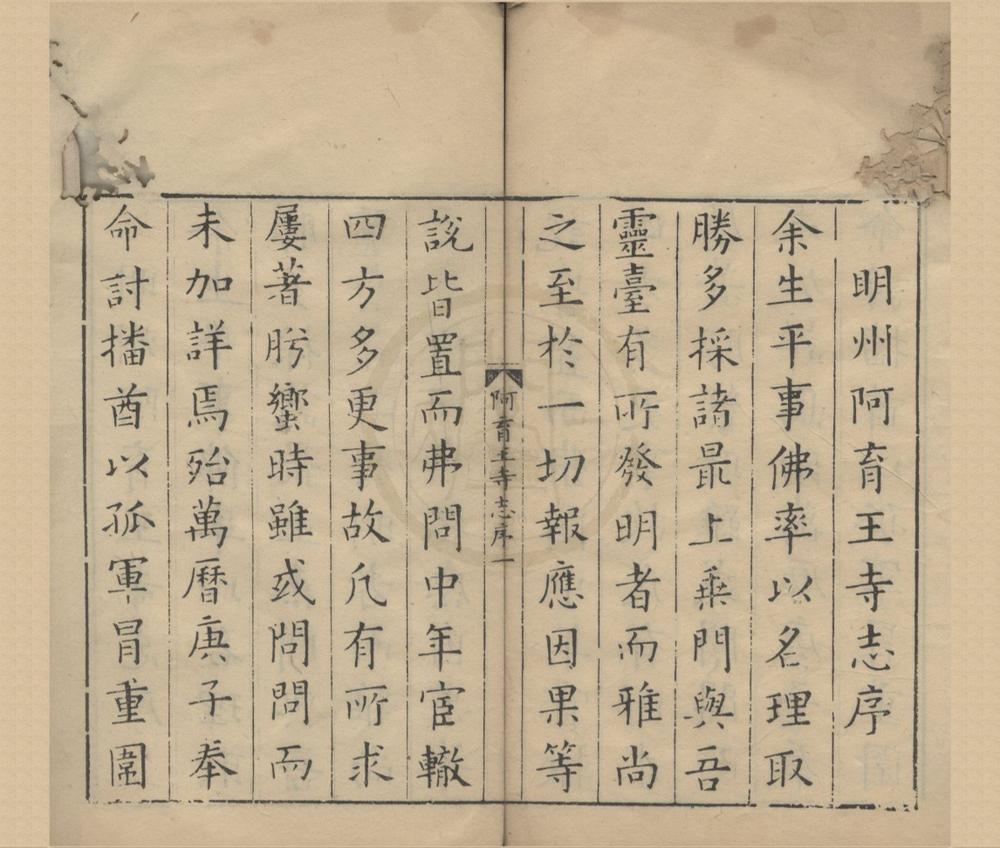 明州阿育王寺志序
余生平事佛率以名理取
勝多採諸最上乘門與吾
靈臺有所發明者而雅尚
之至於一切報應因果等
阿育王寺志序一
說皆置而弗問中年宦轍
四方多更事故凢有所求
屢著肸蠁時雖或問問而
未加詳焉殆萬曆庚子奉
命討播酋以孤軍冒重圍